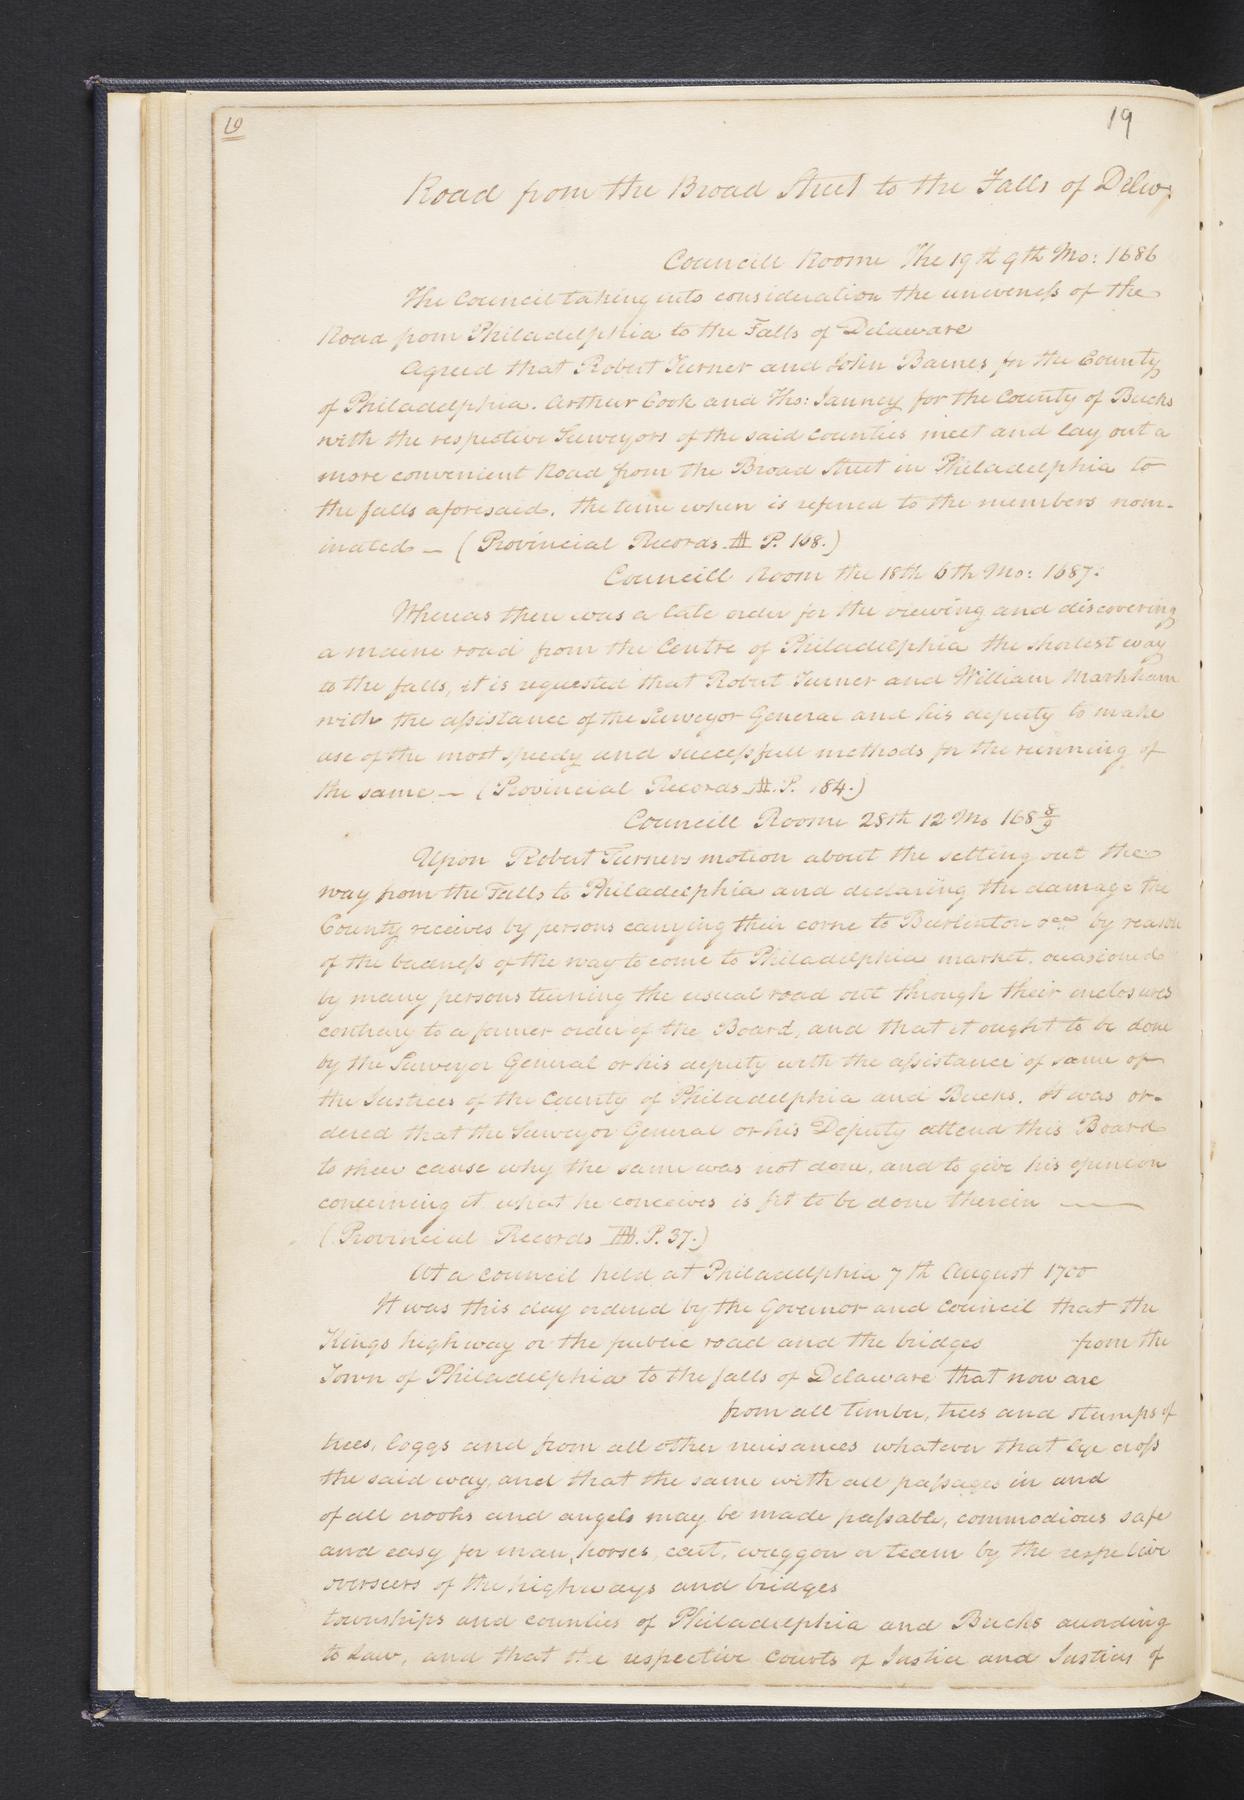 19
19
Road from the Broad Street to the Falls of Delwr
Councill Roome The 19th 9th Mo: 1686
The Council taking into consideration the uneveness of the
Road from Philadelphia to the Falls of Delaware
Agreed that Robert Turner and John Barnes for the County
of Philadelphia. Arthur Cook and Tho: Janney for the County of Bucks
with the respective Surveyors of the said Counties meet and lay out a
more convenient Road from the Broad Street in Philadelphia to
the falls aforesaid. the time when is refered to the members nom-
inated — (Provincial Records. A P. 168.)
Councill Room the 18th 6th Mo: 1687:
Whereas there was a late order for the viewing and discovering
a maine road from the Centre of Philadelphia the shortest way
to the falls, it is requested that Robert Turner and William Markham
with the assistance of the Surveyor General and his deputy to make
use of the most speedy and successfull methods for the running of
the same — (Provincial Records A. P. 184.)
Councill Roome 28th 12 Mo 168 8/9
Upon Robert Turners motion about the setting out the
way from the Falls to Philadelphia and declaring the damage the
County receives by persons carrying their corne to Burlinton by reason
of the badness of the way to come to Philadelphia market. ocasioned
by many persons turning the usual road out through their enclosures
contrary to a former order of the Board, and that it ought to be done
by the Surveyor General or his deputy with the assistance of some of
the Justices of the County of Philadelphia and Bucks. It was or-
dered that the Surveyor General or his Deputy attend this Board
to shew cause why the same was not done, and to give his opinion
concerning it what he conceives is fit to be done therein —
(Provincial Records P. 37.)
At a council held at Philadelphia 7th August 1700
It was this day ordered by the Governor and Council that the
Kings highway or the public road and the bridges from the
Town of Philadelphia to the falls of Delaware that now are
from all timber, trees and stumps of
trees, loggs and from all other nuisances whatever that lye cross
the said way, and that the same with all passages in and
of all crooks and angels may be made passable, commodious safe
and easy for man, horses, cart, waggon or team by the respective
overseers of the highways and bridges
townships and counties of Philadelphia and Bucks according
to Law, and that the respective Courts of Justice and Justices of